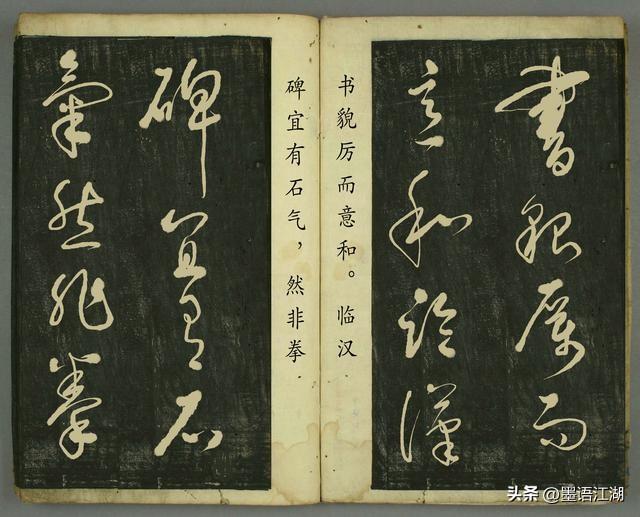 書貌厲而
意和臨漢
书貌厉而意和。临汉
碑宜有石气，然非拳
碑宜有石
氣然非拳
头条 @墨语江湖